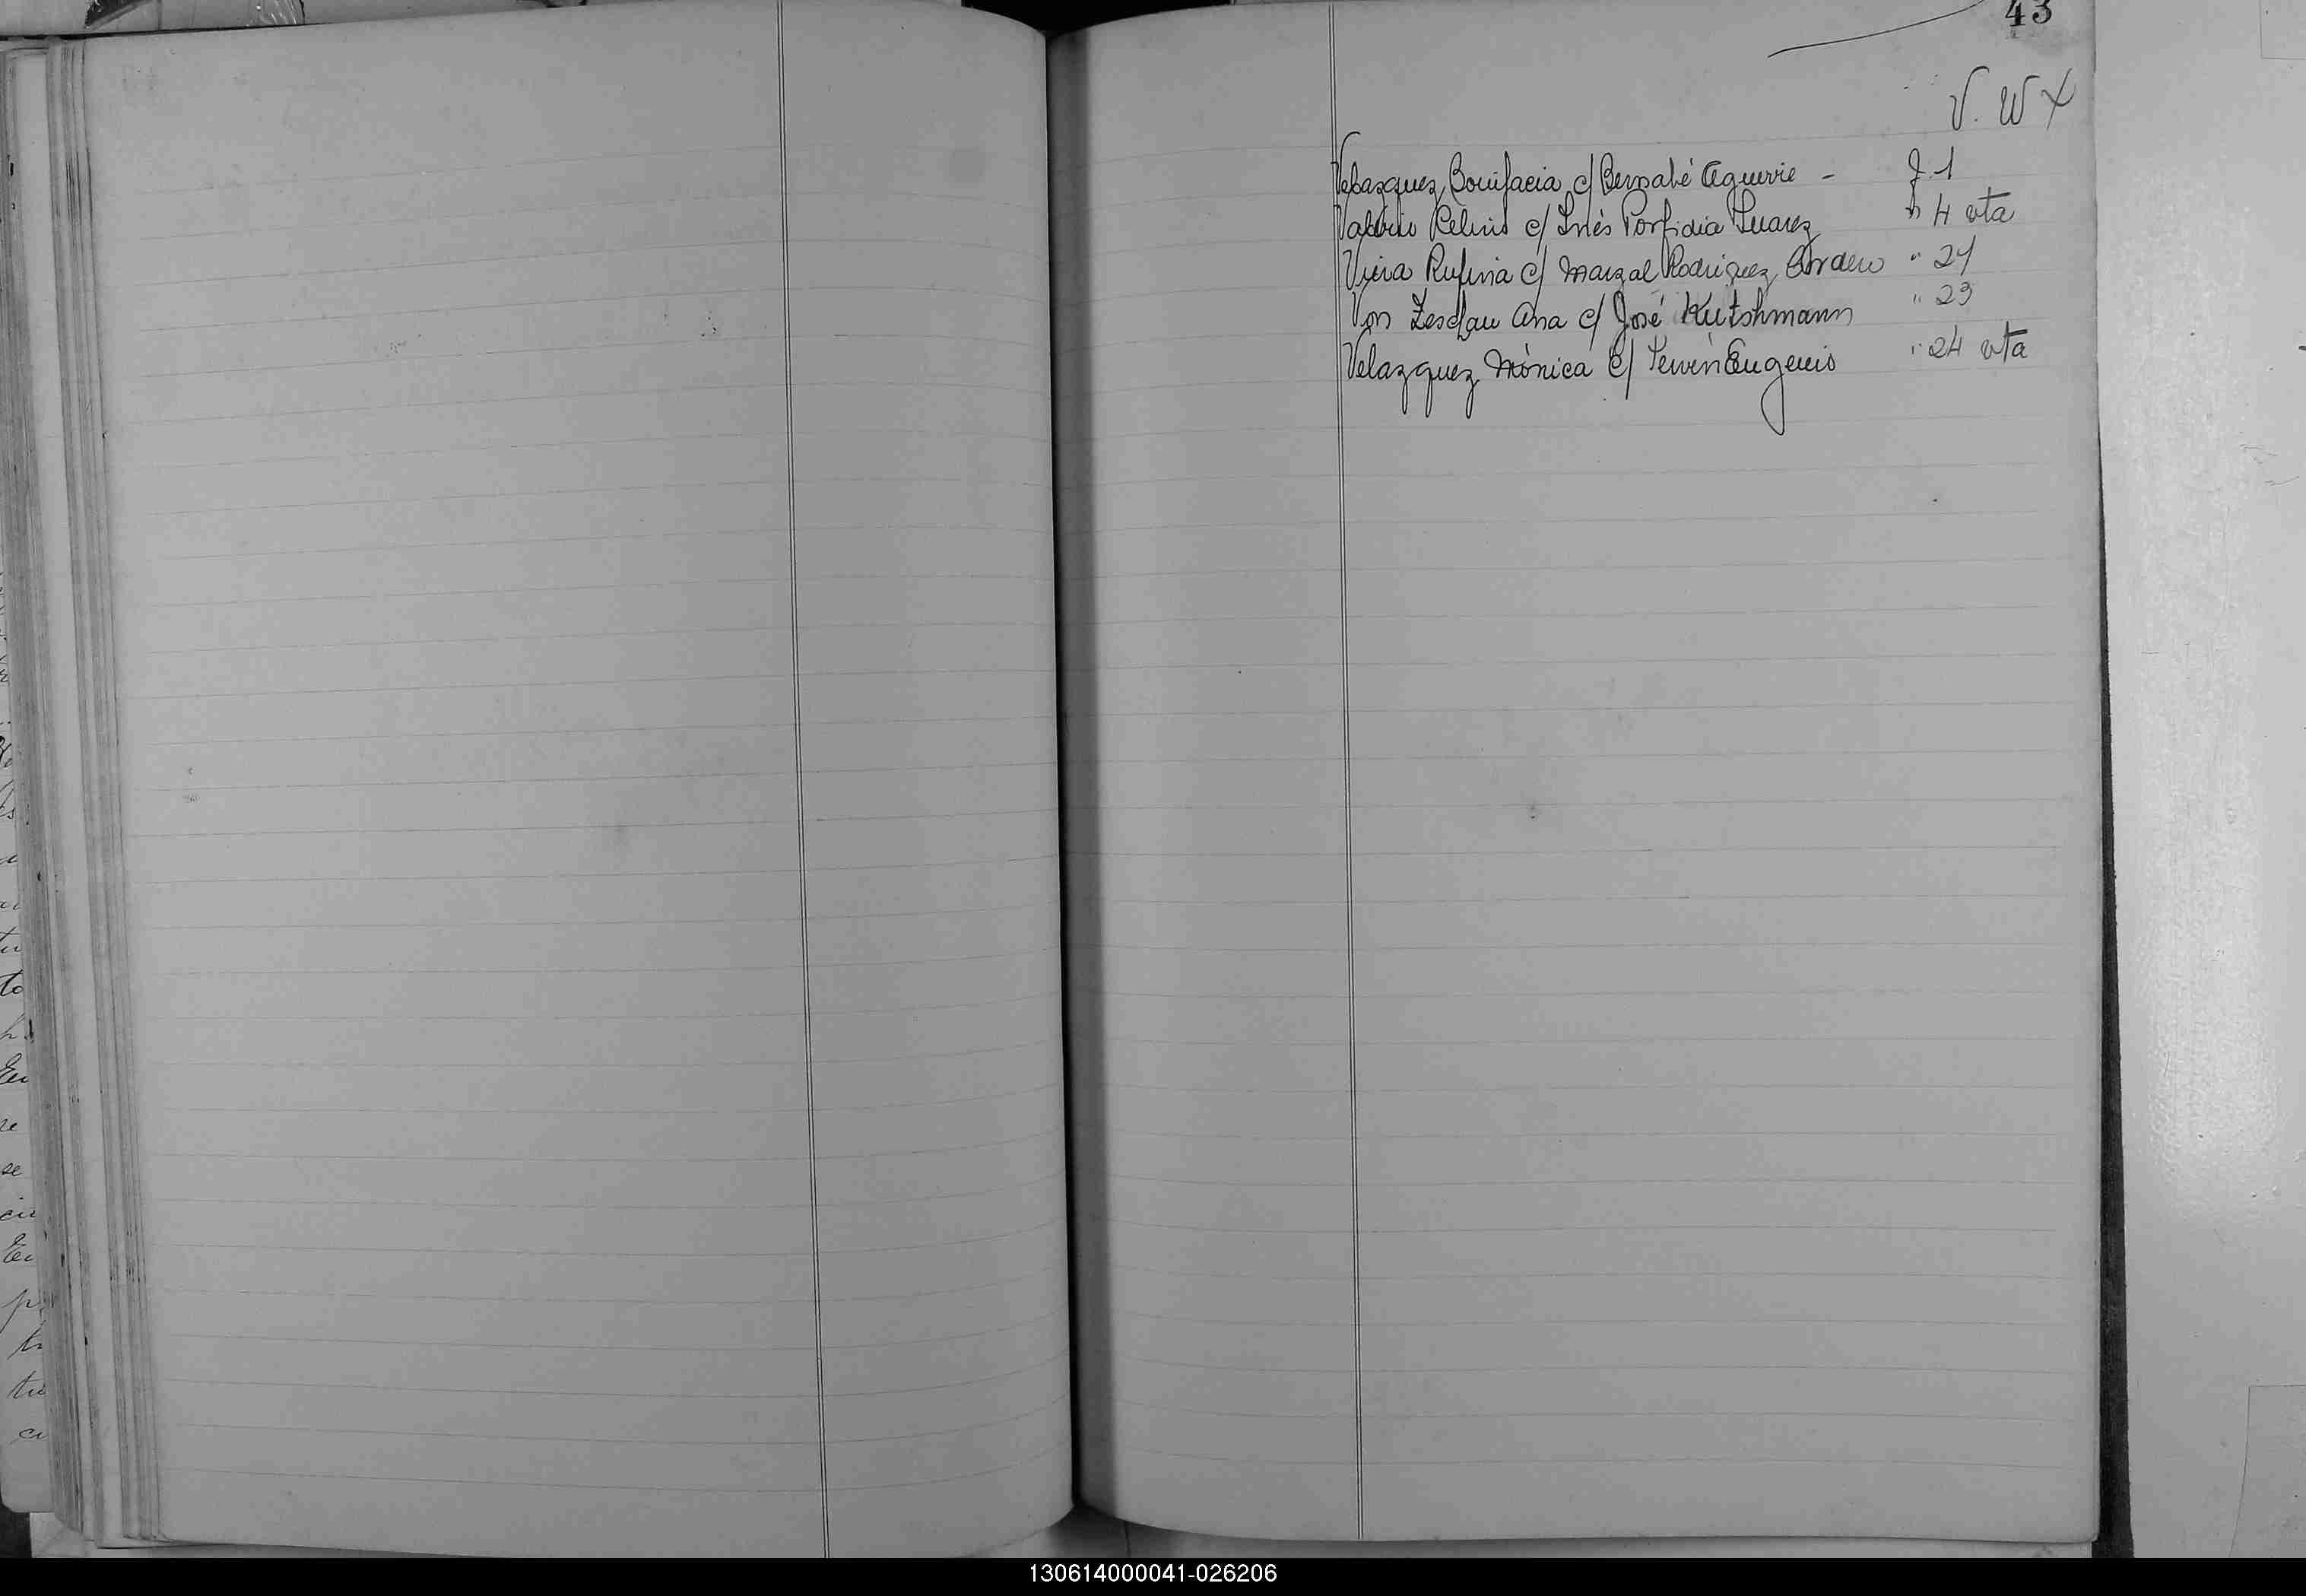 43
V. W X
Velazquez Bonifacia c/ Bernabé Aguirre - F. 1
c/ Inés Porfidia Suarez " 4 vta
Viera Rufina c/ Marzal Rodriguez " 21
Von Zeschau Ana c/ José Kutshmann " 23
Velazquez Mónica c/ Eugenio " 24 vta
130614000041-026206